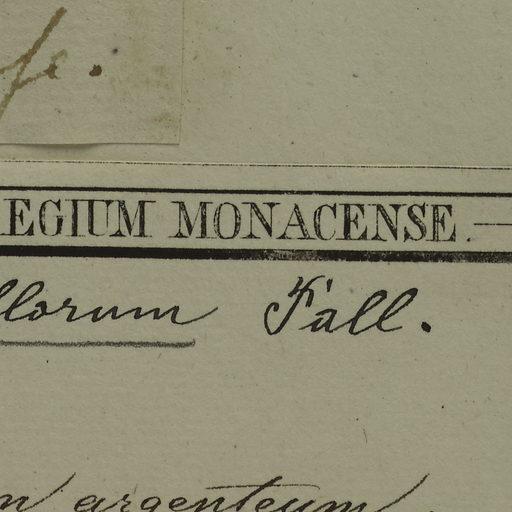 EGIUM MONACENSE.
llorum Fall.
argenteum